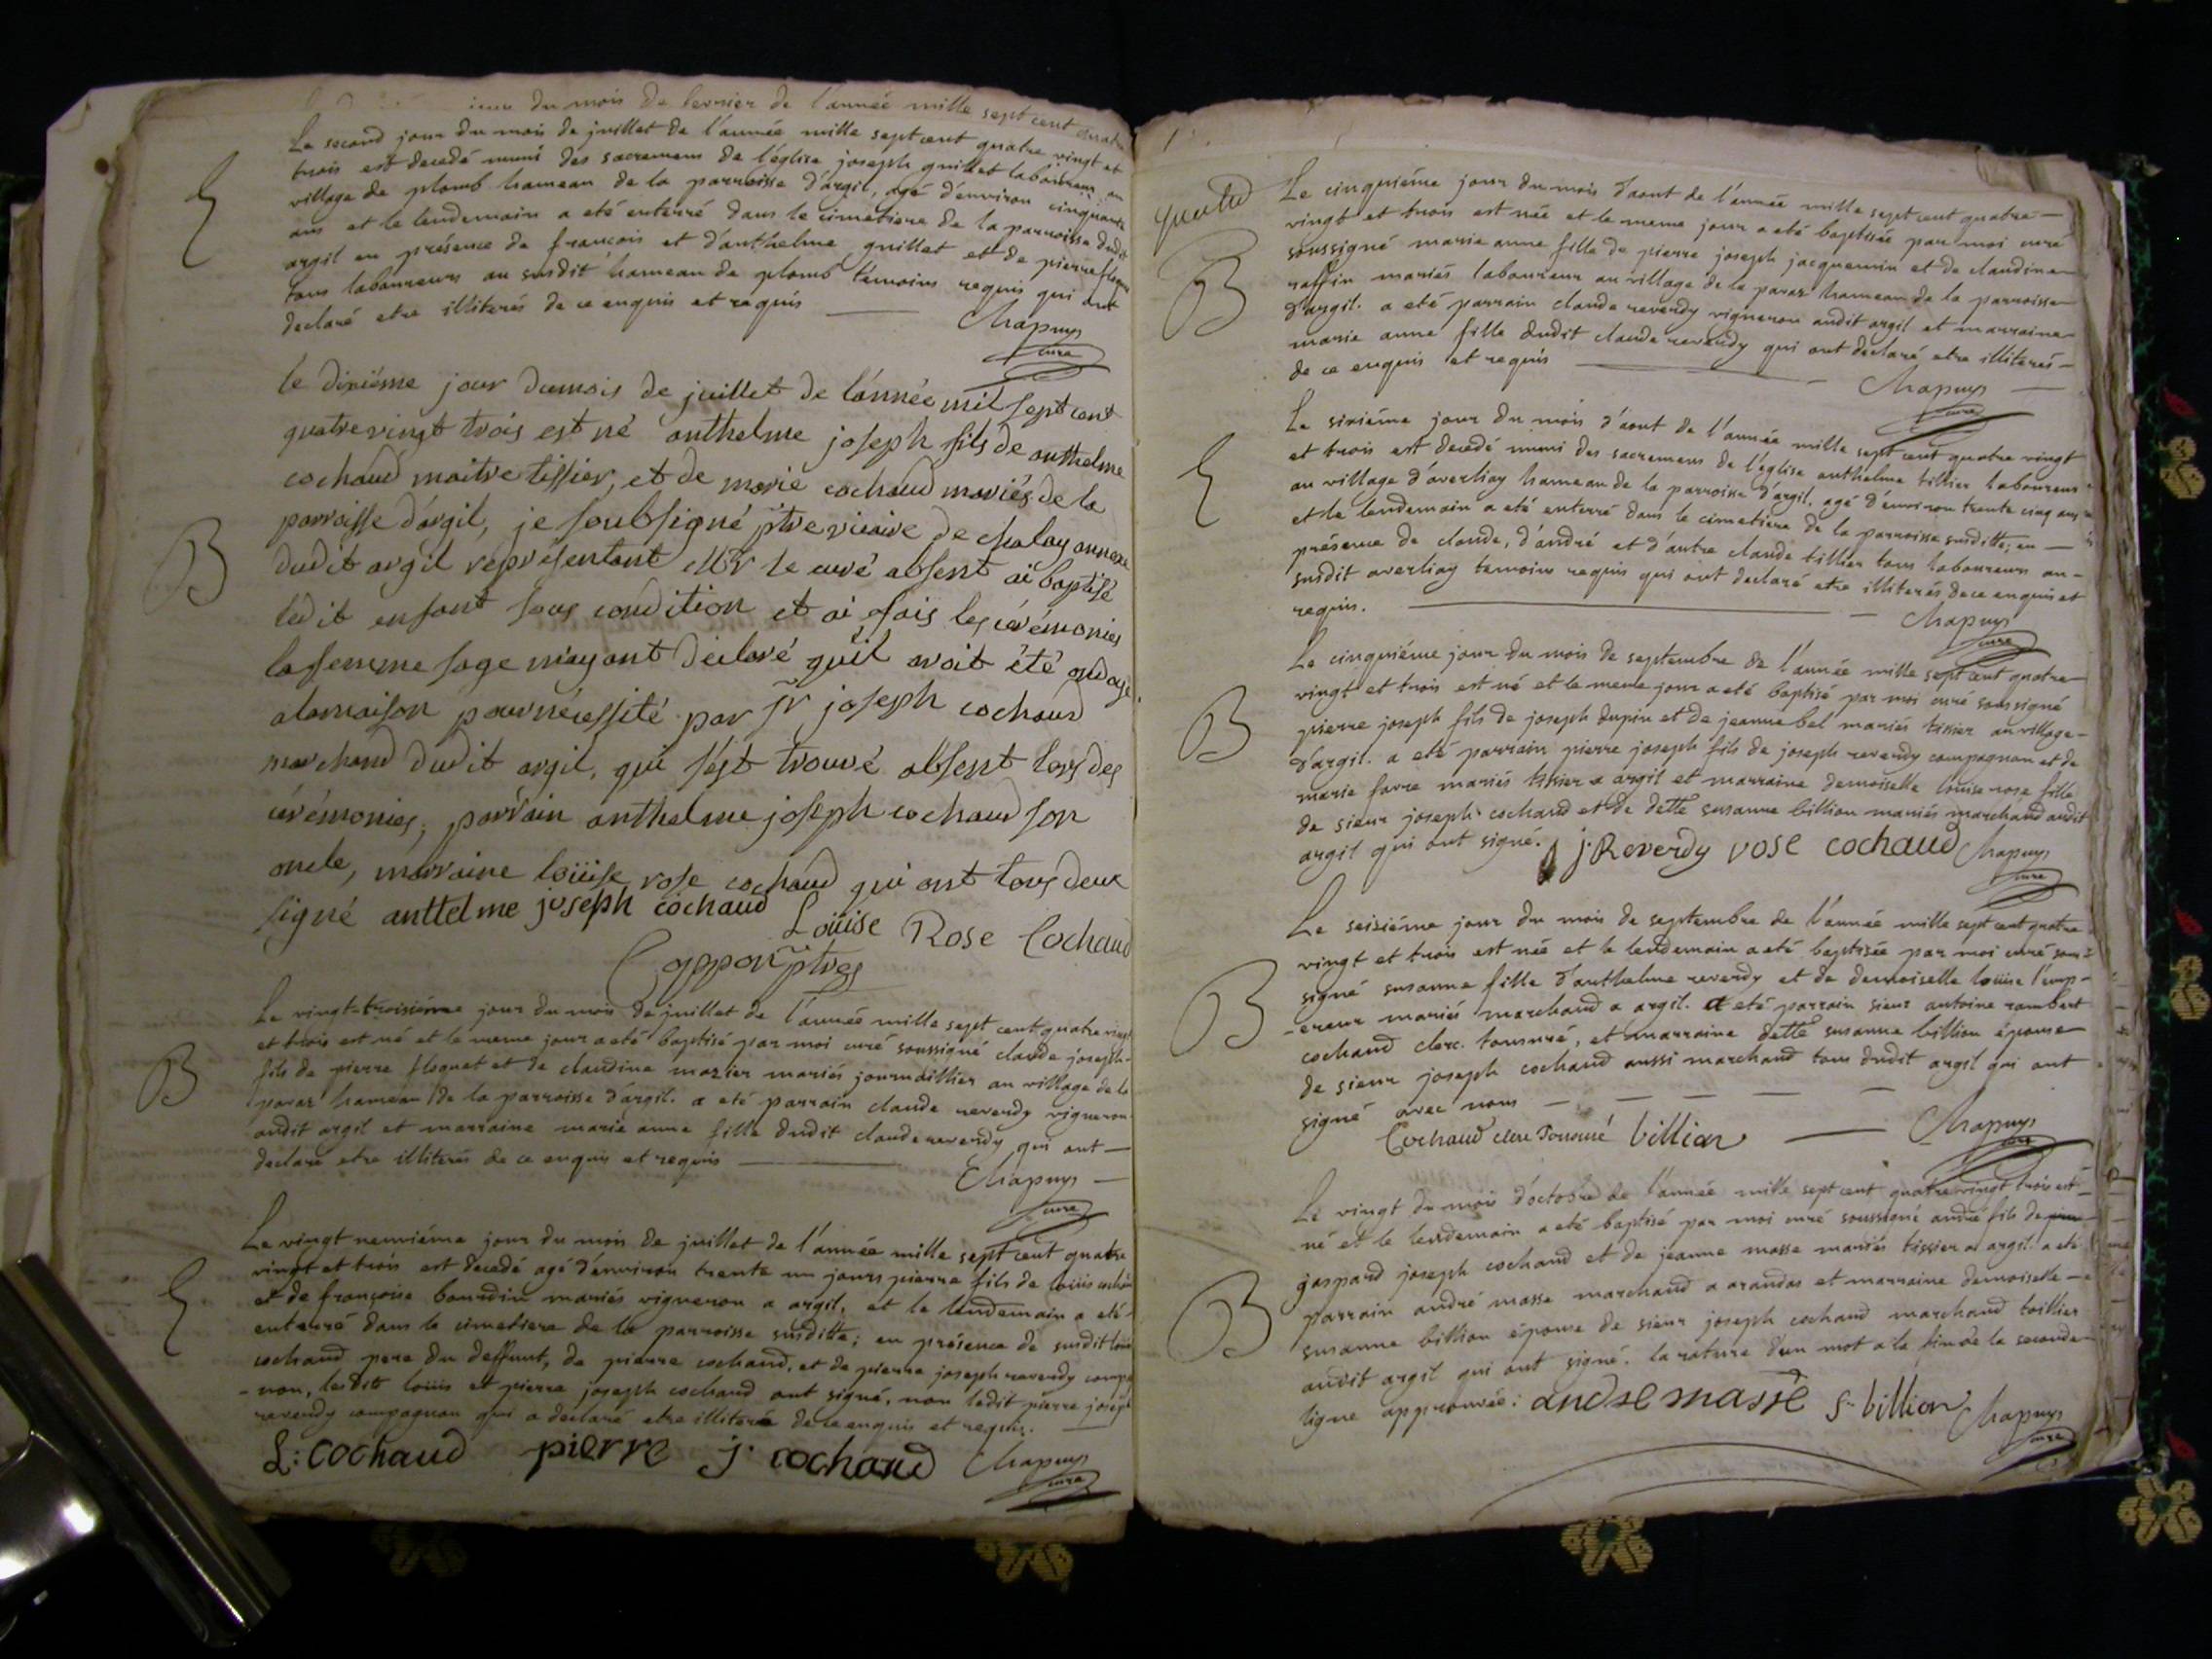 du mois de fevrier de l'année mille sept cent quatre
Le second jour du mois de juillet de l'année mille sept cent quatre vingt et
trois est decedé muni des sacremens de l'église joseph guillet laboureur au
village de plomb hameau de la parroisse d'argil, agé d'environ cinquante
ans et le lendemain a eté enterré dans le cimetiere de la parroisse dudit
argil en présence de françois et d'anthelme guillet et de pierre
tous laboureurs au susdit hameau de plomb temoins requis qui ont
declaré etre illiterés de ce enquis et requis
Chapuys
curé
le dixiéme jour dumois de juillet de lánnée mil sept cent
B
quatrevingt trois est né anthelme joseph fils de anthelme
cochaud maitre tissier, et de marie cochaud mariés de la
parroisse d'argil, je soubsigné ptre vicaire de chaley annexe
dudit argil représentant Mr le curé absent ai baptisé
ledit enfant sous condition et ai fais les cérémonies
la femme sage m'ayant déclaré qu'il avoit été ondoyé
alamaison pour nécessité par sr joseph cochaud
marchand dudit argil, qui s'ést trouvé absent lors des
cérémonies, parrain anthelme joseph cochaud son
oncle, marraine loüise rose cochaud qui ont tous deux
signé anttelme joseph cochaud
Loüise Rose Cochaud
ptre
Le vingt-troisiéme jour du mois de juillet de l'année mille sept cent quatre vingt
B
et trois est né et le meme jour a eté baptisé par moi curé soussigné claude joseph
fils de pierre floquet et de claudine mazier mariés journaillier au village de la
paraz hameau de la parroisse d'argil. a eté parrain claude reverdy vigneron
audit argil et marraine marie anne fille dudit claude reverdy qui ont
declaré etre illiterés de ce enquis et requis
Chapuys
curé
Le vingt neuviéme jour du mois de juillet de l'année mille sept cent quatre
vingt et trois est decedé agé d'environ trente un jours pierre fils de loüis cochaud
et de françoise bourdin mariés vigneron a argil, et le lendemain a eté
enterré dans le cimetiere de la parroisse susditte; en présence de susdit loüis
cochaud pere du deffunt, de pierre cochaud, et de pierre joseph reverdy compa
-non, lesdits loüis et pierre joseph cochaud ont signé, non ledit pierre joseph
reverdy compagnon qui a declaré etre illiteré de ce enquis et requis.
L: cochaud pierre j cochaud Chapuys
curé
Le cinquiéme jour du mois d'aout de l'année mille sept cent quatre
B
vingt et trois est née et le meme jour a eté baptisée par moi curé
soussigné marie anne fille de pierre joseph jacquemin et de claudine
raffin mariés laboureur au village de la paraz hameau de la parroisse
d'argil. a eté parrain claude reverdy vigneron audit argil et marraine
marie anne fille dudit claude reverdy qui ont declaré etre illiterés
de ce enquis et requis
Chapuys
curé
Le sixiéme jour du mois d'aout de l'année mille sept cent quatre vingt
et trois est decedé muni des sacremens de l'église anthelme tillier laboureur
au village d'averliay hameau de la parroisse d'argil, agé d'environ trente cinq ans
et le lendemain a eté enterré dans le cimetiere de la parroisse susditte; en
présence de claude, d'andré et d'autre claude tillier tous laboureurs au
susdit averliay temoins requis qui ont declaré etre illiterés de ce enquis et
requis.
Chapuys
curé
Le cinquiéme jour du mois de septembre de l'année mille sept cent quatre
B
vingt et trois est né et le meme jour a eté baptisé par moi curé soussigné
pierre joseph fils de joseph dupin et de jeanne bel mariés tissier au village
d'argil. a eté parrain pierre joseph fils de joseph reverdy compagnon et de
marie favre mariés tissier a argil et marraine demoiselle loüise rose fille
de sieur joseph cochaud et de delle susanne billion mariés marchand audit
argil qui ont signé. j. Reverdy rose cochaud Chapuys
curé
Le seisiéme jour du mois de septembre de l'année mille sept cent quatre
B
vingt et trois est née et le lendemain a eté baptisée par moi curé sous-
signé susanne fille d'anthelme reverdy et de demoiselle loüise l'emp-
-ereur mariés marchand a argil. a eté parrain sieur antoine rambert
cochaud clerc tonsuré, et marraine delle susanne billion épouse
de sieur joseph cochaud aussi marchand tous dudit argil qui ont
signé avec nous
Cochaud clerc Tonsuré billion Chapuys
curé
Le vingt du mois d'octobre de l'année mille sept cent quatre vingt trois est
B
né et le lendemain a eté baptisé par moi curé soussigné andré fils de
gaspard joseph cochaud et de jeanne masse mariés tissier a argil. a eté
parrain andré masse marchand a arandas et marraine demoiselle
susanne billion épouse de sieur joseph cochaud marchand toillier
audit argil qui ont signé. la rature d'un mot a la fin de la seconde
ligne approuvée: andre masse s. billion Chapuys
curé